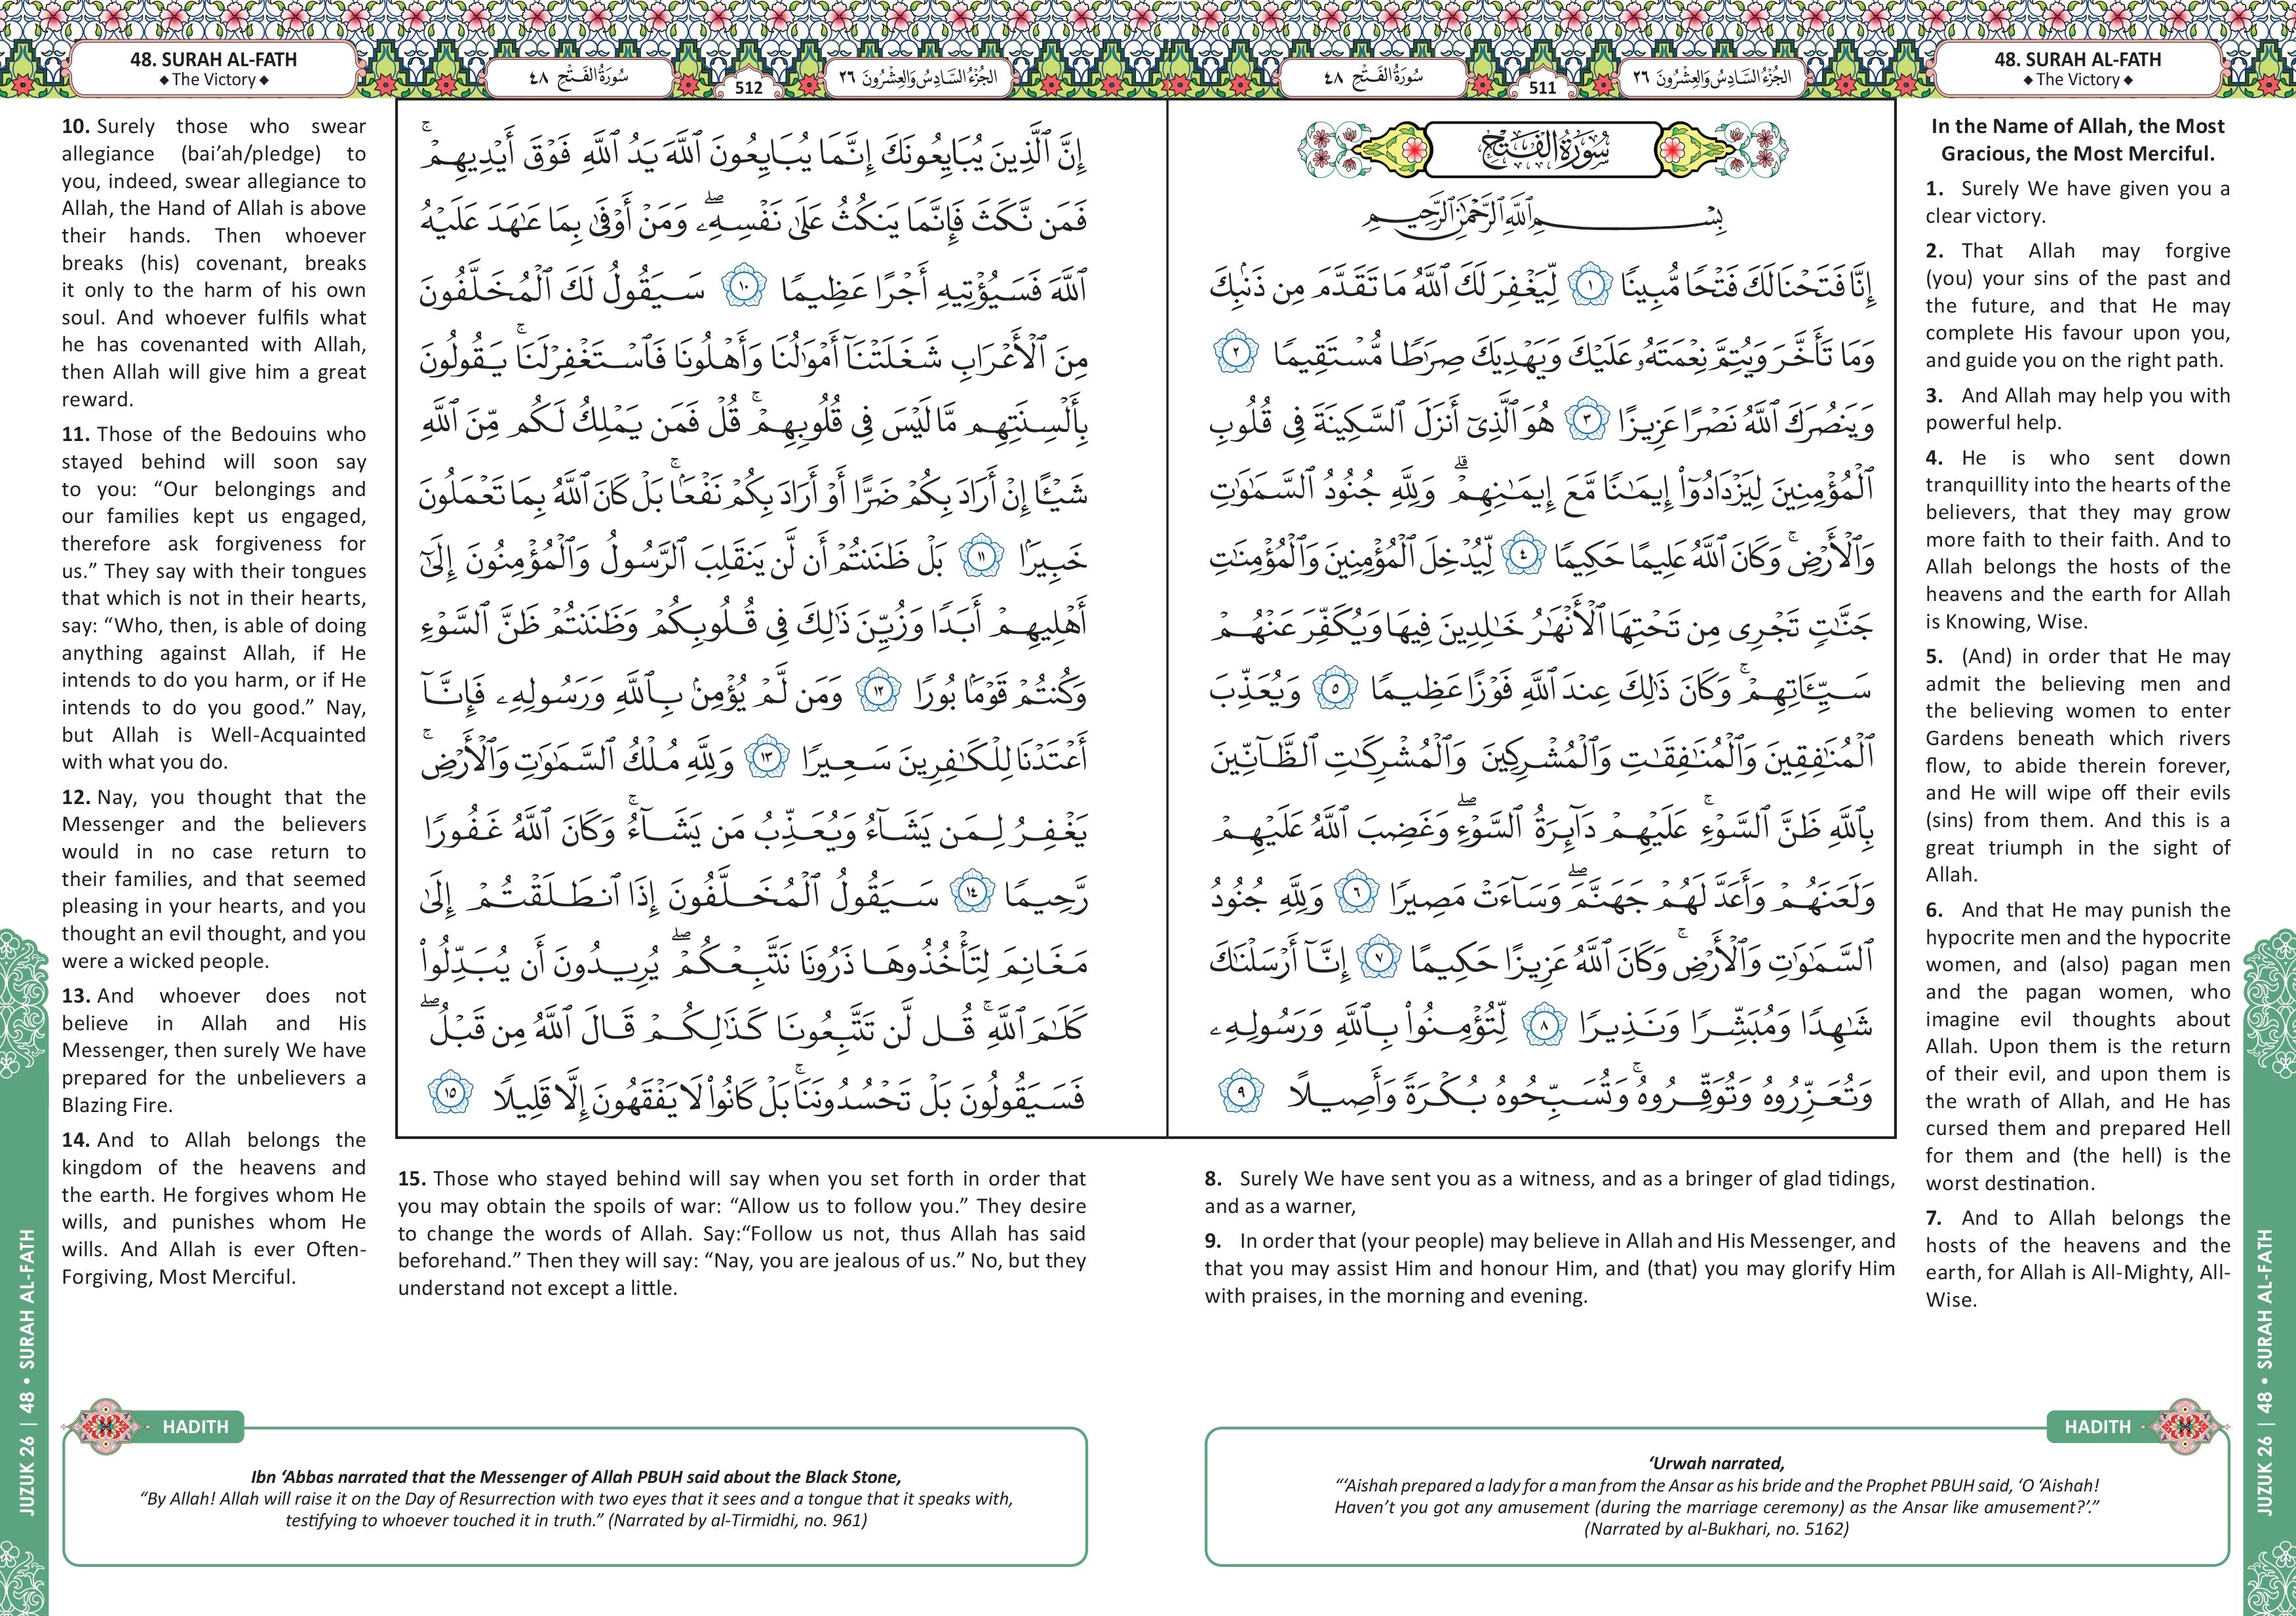 48. SURAH AL-FATH
◆ The Victory ◆
الجُزْءُ السَّادِسُ وَالعِشْرُونَ ٢٦
511
سُورَةُ الفَتْحِ ٤٨
سُورَةُ الفَتْحِ
بِسْمِ ٱللَّهِ ٱلرَّحْمَٰنِ ٱلرَّحِيمِ
إِنَّا فَتَحْنَا لَكَ فَتْحًا مُّبِينًا ١ لِّيَغْفِرَ لَكَ ٱللَّهُ مَا تَقَدَّمَ مِن ذَنۢبِكَ
وَمَا تَأَخَّرَ وَيُتِمَّ نِعْمَتَهُۥ عَلَيْكَ وَيَهْدِيَكَ صِرَٰطًا مُّسْتَقِيمًا ٢
وَيَنصُرَكَ ٱللَّهُ نَصْرًا عَزِيزًا ٣ هُوَ ٱلَّذِىٓ أَنزَلَ ٱلسَّكِينَةَ فِى قُلُوبِ
ٱلْمُؤْمِنِينَ لِيَزْدَادُوٓا۟ إِيمَٰنًا مَّعَ إِيمَٰنِهِمْ ۗ وَلِلَّهِ جُنُودُ ٱلسَّمَٰوَٰتِ
وَٱلْأَرْضِ ۚ وَكَانَ ٱللَّهُ عَلِيمًا حَكِيمًا ٤ لِّيُدْخِلَ ٱلْمُؤْمِنِينَ وَٱلْمُؤْمِنَٰتِ
جَنَّٰتٍ تَجْرِى مِن تَحْتِهَا ٱلْأَنْهَٰرُ خَٰلِدِينَ فِيهَا وَيُكَفِّرَ عَنْهُمْ
سَيِّـَٔاتِهِمْ ۚ وَكَانَ ذَٰلِكَ عِندَ ٱللَّهِ فَوْزًا عَظِيمًا ٥ وَيُعَذِّبَ
ٱلْمُنَٰفِقِينَ وَٱلْمُنَٰفِقَٰتِ وَٱلْمُشْرِكِينَ وَٱلْمُشْرِكَٰتِ ٱلظَّآنِّينَ
بِٱللَّهِ ظَنَّ ٱلسَّوْءِ ۚ عَلَيْهِمْ دَآئِرَةُ ٱلسَّوْءِ ۖ وَغَضِبَ ٱللَّهُ عَلَيْهِمْ
وَلَعَنَهُمْ وَأَعَدَّ لَهُمْ جَهَنَّمَ ۖ وَسَآءَتْ مَصِيرًا ٦ وَلِلَّهِ جُنُودُ
ٱلسَّمَٰوَٰتِ وَٱلْأَرْضِ ۚ وَكَانَ ٱللَّهُ عَزِيزًا حَكِيمًا ٧ إِنَّآ أَرْسَلْنَٰكَ
شَٰهِدًا وَمُبَشِّرًا وَنَذِيرًا ٨ لِّتُؤْمِنُوا۟ بِٱللَّهِ وَرَسُولِهِۦ
وَتُعَزِّرُوهُ وَتُوَقِّرُوهُ ۚ وَتُسَبِّحُوهُ بُكْرَةً وَأَصِيلًا ٩
In the Name of Allah, the Most
Gracious, the Most Merciful.
1. Surely We have given you a
clear victory.
2. That Allah may forgive
(you) your sins of the past and
the future, and that He may
complete His favour upon you,
and guide you on the right path.
3. And Allah may help you with
powerful help.
4. He is who sent down
tranquillity into the hearts of the
believers, that they may grow
more faith to their faith. And to
Allah belongs the hosts of the
heavens and the earth for Allah
is Knowing, Wise.
5. (And) in order that He may
admit the believing men and
the believing women to enter
Gardens beneath which rivers
flow, to abide therein forever,
and He will wipe off their evils
(sins) from them. And this is a
great triumph in the sight of
Allah.
6. And that He may punish the
hypocrite men and the hypocrite
women, and (also) pagan men
and the pagan women, who
imagine evil thoughts about
Allah. Upon them is the return
of their evil, and upon them is
the wrath of Allah, and He has
cursed them and prepared Hell
for them and (the hell) is the
worst destination.
7. And to Allah belongs the
hosts of the heavens and the
earth, for Allah is All-Mighty, All-
Wise.
8. Surely We have sent you as a witness, and as a bringer of glad tidings,
and as a warner,
9. In order that (your people) may believe in Allah and His Messenger, and
that you may assist Him and honour Him, and (that) you may glorify Him
with praises, in the morning and evening.
HADITH
‘Urwah narrated,
“‘Aishah prepared a lady for a man from the Ansar as his bride and the Prophet PBUH said, ‘O ‘Aishah!
Haven’t you got any amusement (during the marriage ceremony) as the Ansar like amusement?’.”
(Narrated by al-Bukhari, no. 5162)
JUZUK 26 | 48 • SURAH AL-FATH
48. SURAH AL-FATH
◆ The Victory ◆
الجُزْءُ السَّادِسُ وَالعِشْرُونَ ٢٦
512
سُورَةُ الفَتْحِ ٤٨
إِنَّ ٱلَّذِينَ يُبَايِعُونَكَ إِنَّمَا يُبَايِعُونَ ٱللَّهَ يَدُ ٱللَّهِ فَوْقَ أَيْدِيهِمْ ۚ
فَمَن نَّكَثَ فَإِنَّمَا يَنكُثُ عَلَىٰ نَفْسِهِۦ ۖ وَمَنْ أَوْفَىٰ بِمَا عَٰهَدَ عَلَيْهُ
ٱللَّهَ فَسَيُؤْتِيهِ أَجْرًا عَظِيمًا ١٠ سَيَقُولُ لَكَ ٱلْمُخَلَّفُونَ
مِنَ ٱلْأَعْرَابِ شَغَلَتْنَآ أَمْوَٰلُنَا وَأَهْلُونَا فَٱسْتَغْفِرْ لَنَا ۚ يَقُولُونَ
بِأَلْسِنَتِهِم مَّا لَيْسَ فِى قُلُوبِهِمْ ۚ قُلْ فَمَن يَمْلِكُ لَكُم مِّنَ ٱللَّهِ
شَيْـًٔا إِنْ أَرَادَ بِكُمْ ضَرًّا أَوْ أَرَادَ بِكُمْ نَفْعًۢا ۚ بَلْ كَانَ ٱللَّهُ بِمَا تَعْمَلُونَ
خَبِيرًۢا ١١ بَلْ ظَنَنتُمْ أَن لَّن يَنقَلِبَ ٱلرَّسُولُ وَٱلْمُؤْمِنُونَ إِلَىٰٓ
أَهْلِيهِمْ أَبَدًا وَزُيِّنَ ذَٰلِكَ فِى قُلُوبِكُمْ وَظَنَنتُمْ ظَنَّ ٱلسَّوْءِ
وَكُنتُمْ قَوْمًۢا بُورًا ١٢ وَمَن لَّمْ يُؤْمِنۢ بِٱللَّهِ وَرَسُولِهِۦ فَإِنَّآ
أَعْتَدْنَا لِلْكَٰفِرِينَ سَعِيرًا ١٣ وَلِلَّهِ مُلْكُ ٱلسَّمَٰوَٰتِ وَٱلْأَرْضِ ۚ
يَغْفِرُ لِمَن يَشَآءُ وَيُعَذِّبُ مَن يَشَآءُ ۚ وَكَانَ ٱللَّهُ غَفُورًا
رَّحِيمًا ١٤ سَيَقُولُ ٱلْمُخَلَّفُونَ إِذَا ٱنطَلَقْتُمْ إِلَىٰ
مَغَانِمَ لِتَأْخُذُوهَا ذَرُونَا نَتَّبِعْكُمْ ۖ يُرِيدُونَ أَن يُبَدِّلُوا۟
كَلَٰمَ ٱللَّهِ ۚ قُل لَّن تَتَّبِعُونَا كَذَٰلِكُمْ قَالَ ٱللَّهُ مِن قَبْلُ ۖ
فَسَيَقُولُونَ بَلْ تَحْسُدُونَنَا ۚ بَلْ كَانُوا۟ لَا يَفْقَهُونَ إِلَّا قَلِيلًا ١٥
10. Surely those who swear
allegiance (bai’ah/pledge) to
you, indeed, swear allegiance to
Allah, the Hand of Allah is above
their hands. Then whoever
breaks (his) covenant, breaks
it only to the harm of his own
soul. And whoever fulfils what
he has covenanted with Allah,
then Allah will give him a great
reward.
11. Those of the Bedouins who
stayed behind will soon say
to you: “Our belongings and
our families kept us engaged,
therefore ask forgiveness for
us.” They say with their tongues
that which is not in their hearts,
say: “Who, then, is able of doing
anything against Allah, if He
intends to do you harm, or if He
intends to do you good.” Nay,
but Allah is Well-Acquainted
with what you do.
12. Nay, you thought that the
Messenger and the believers
would in no case return to
their families, and that seemed
pleasing in your hearts, and you
thought an evil thought, and you
were a wicked people.
13. And whoever does not
believe in Allah and His
Messenger, then surely We have
prepared for the unbelievers a
Blazing Fire.
14. And to Allah belongs the
kingdom of the heavens and
the earth. He forgives whom He
wills, and punishes whom He
wills. And Allah is ever Often-
Forgiving, Most Merciful.
15. Those who stayed behind will say when you set forth in order that
you may obtain the spoils of war: “Allow us to follow you.” They desire
to change the words of Allah. Say:“Follow us not, thus Allah has said
beforehand.” Then they will say: “Nay, you are jealous of us.” No, but they
understand not except a little.
HADITH
Ibn ‘Abbas narrated that the Messenger of Allah PBUH said about the Black Stone,
“By Allah! Allah will raise it on the Day of Resurrection with two eyes that it sees and a tongue that it speaks with,
testifying to whoever touched it in truth.” (Narrated by al-Tirmidhi, no. 961)
JUZUK 26 | 48 • SURAH AL-FATH